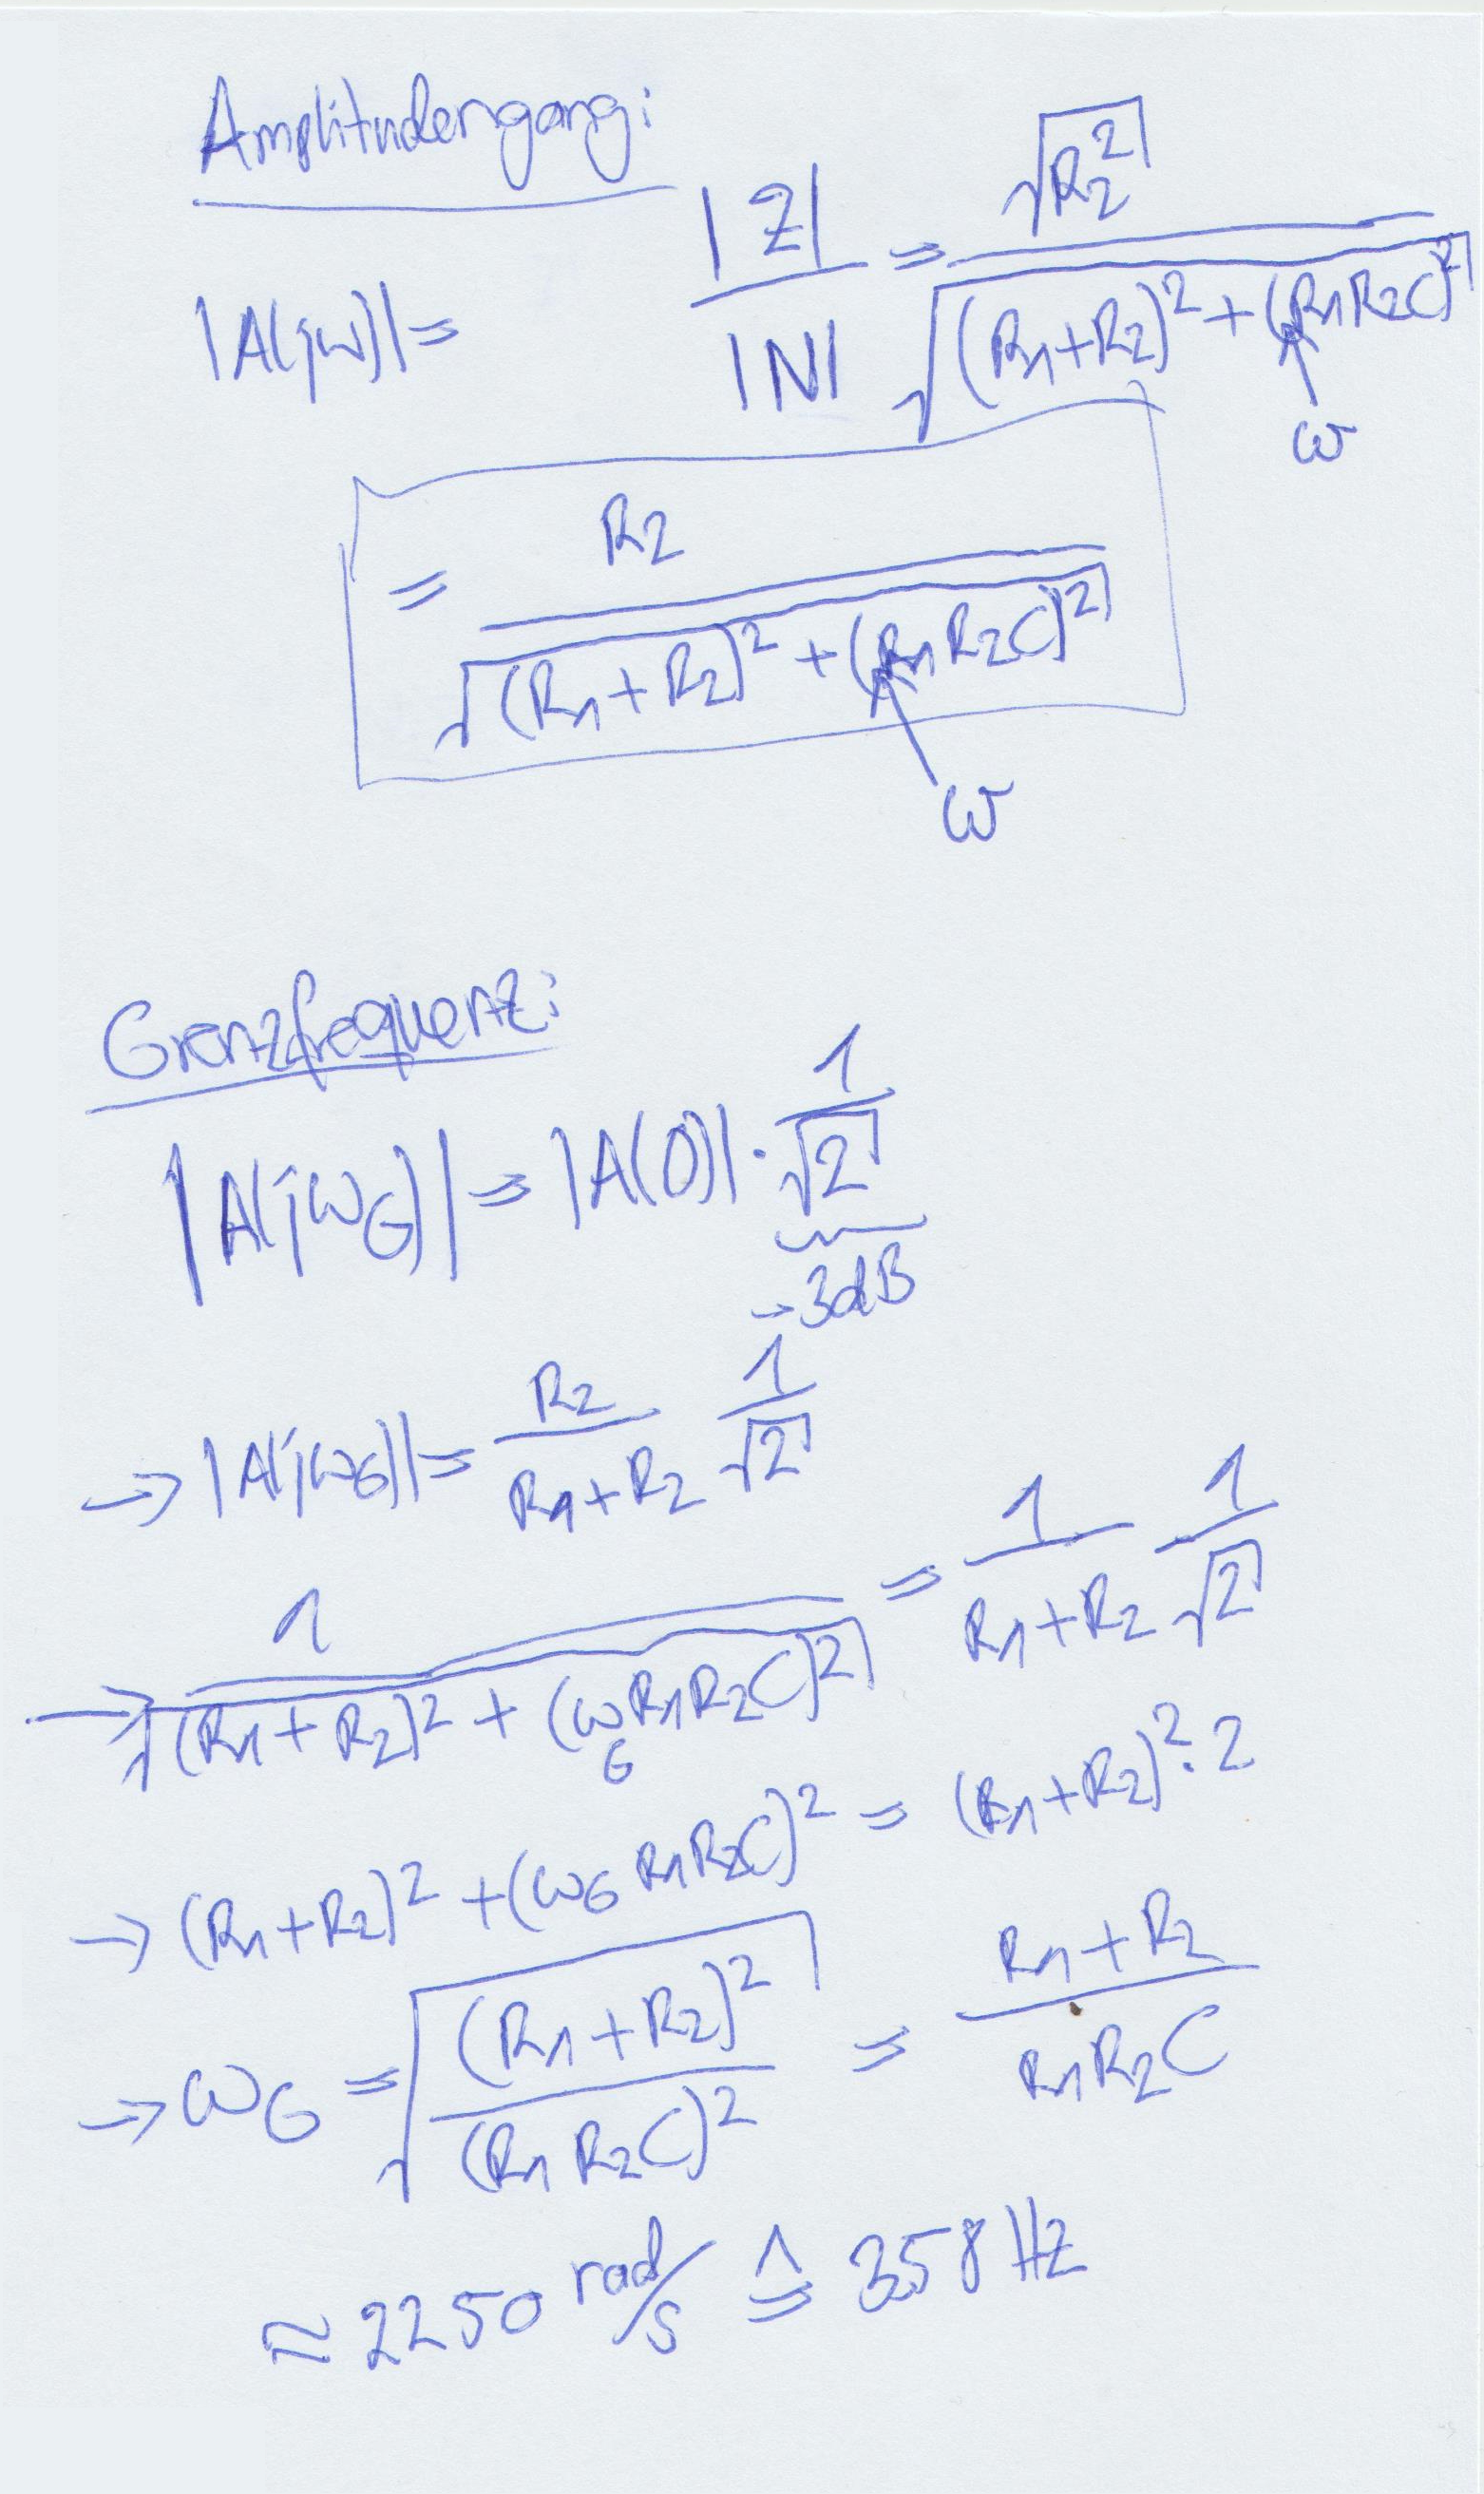 Amplitudengang:
|A(jω)| = |Z| / |N| = √(R2²) / √((R1+R2)² + (R1R2C)²)
ω
= R2 / √((R1+R2)² + (R1R2C)²)
ω
Grenzfrequenz:
|A(jωG)| = |A(0)| · 1/√2
-3dB
→ |A(jωG)| = R2/(R1+R2) 1/√2
→ 1/√((R1+R2)² + (ωG R1R2C)²) = 1/(R1+R2) 1/√2
→ (R1+R2)² + (ωG R1R2C)² = (R1+R2)² · 2
→ ωG = √((R1+R2)²/(R1R2C)²) = (R1+R2)/(R1R2C)
≈ 2250 rad/s ≙ 358 Hz